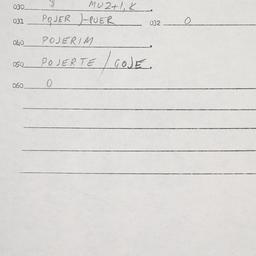 030 8 MU2+1,K.
031 POJER )-PUER 032 0
040 POJERIM.
050 POJERTE / GOJE.
060 0